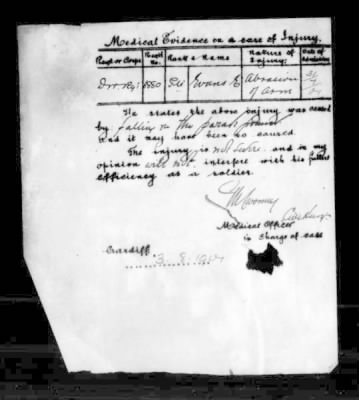 Medical Evidence on a case of Injury.
Regt or Corps Regtl No. Rank & Name Nature of Injury; Date of Admission
5550 Pte Evans E Abrasion of arm
He states the above injury was caused
by falling on the Parade
and it may have been so caused
The injury is not severe and in my
opinion will not interfere with his future
efficiency as a soldier.
Medical Officer
in Charge of case
Cardiff